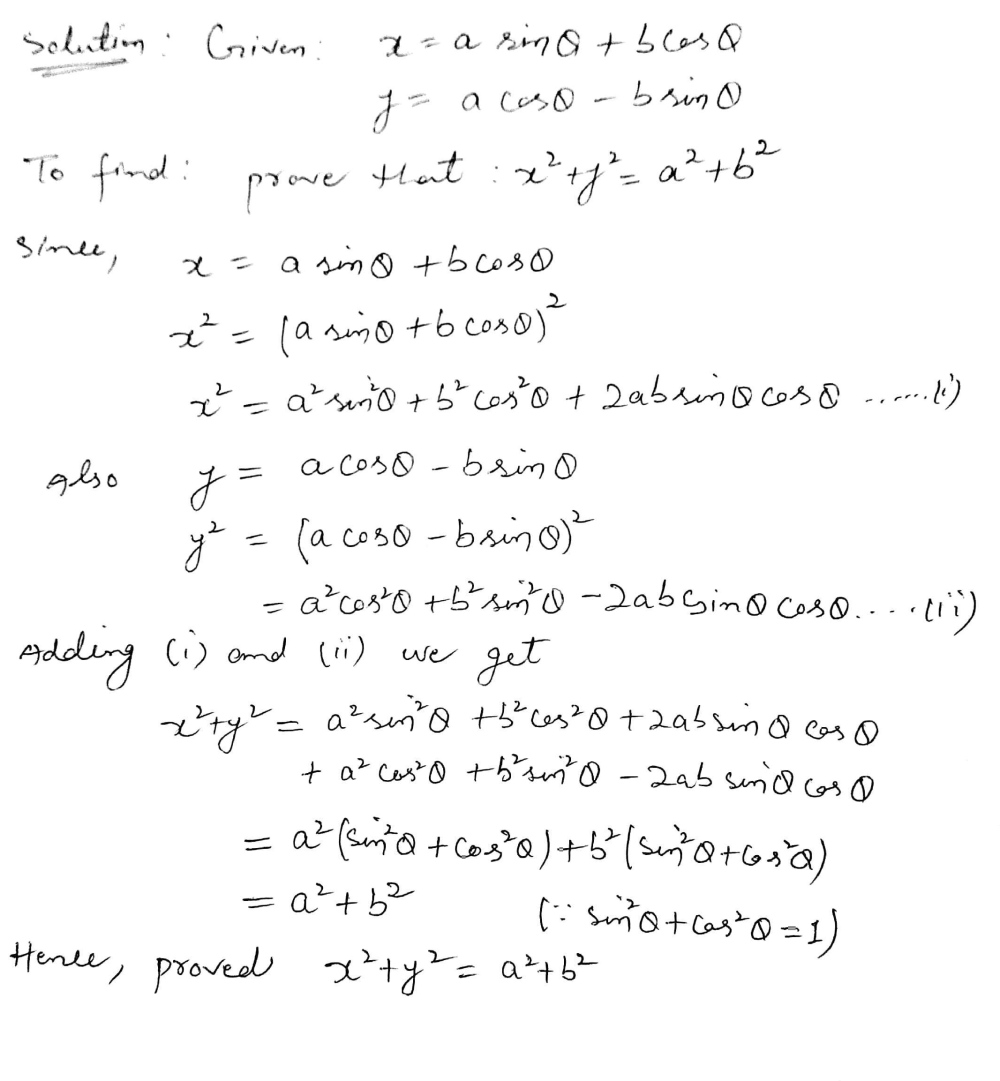 Solution : Given : x = a sinθ + b cosθ
y = a cosθ - b sinθ
To find : prove that : x² + y² = a² + b²
Since, x = a sinθ + b cosθ
x² = (a sinθ + b cosθ)²
x² = a² sin²θ + b² cos²θ + 2ab sinθ cosθ ......(i)
Also y = a cosθ - b sinθ
y² = (a cosθ - b sinθ)²
= a² cos²θ + b² sin²θ - 2ab sinθ cosθ....(ii)
Adding (i) and (ii) we get
x² + y² = a² sin²θ + b² cos²θ + 2ab sinθ cosθ
+ a² cos²θ + b² sin²θ - 2ab sinθ cosθ
= a² (sin²θ + cos²θ) + b² (sin²θ + cos²θ)
= a² + b² (∵ sin²θ + cos²θ = 1)
Hence, proved x² + y² = a² + b²